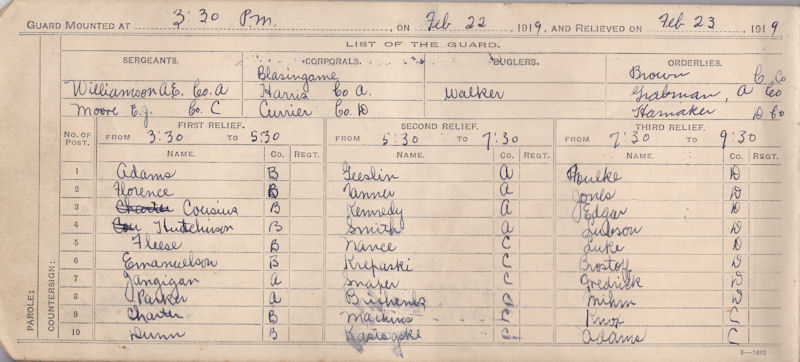 GUARD MOUNTED AT 3:30 P.M., ON Feb 22 1919, AND RELIEVED ON Feb 23 1919
LIST OF THE GUARD.
SERGEANTS. CORPORALS. BUGLERS. ORDERLIES.
Blasingame Brown C. Co
Williamson A.E. Co. A Harris Co A. Walker Grabman, A Co
Moore E.J. Co. C Currier Co. D Hamaker D Co
No. OF POST. FIRST RELIEF. SECOND RELIEF. THIRD RELIEF.
FROM 3:30 TO 5:30 FROM 5:30 TO 7:30 FROM 7:30 TO 9:30
NAME. Co. REGT. NAME. Co. REGT. NAME. Co. REGT.
1 Adams B Geeslin A Foulke D
2 Florence B Tanner A Jones D
3 Charter Cousins B Kennedy A Edgar D
4 Cou Hutchinson B Smith A D
5 Fleese B Nance C Luke D
6 Emanuelson B Krepaski C Brostoff D
7 Gangigan A C Fredrick D
8 Parker A C Mihm D
9 Charter B Mackins C Knox C
10 Dunn B C Adams C
PAROLE:
COUNTERSIGN:
3—1492